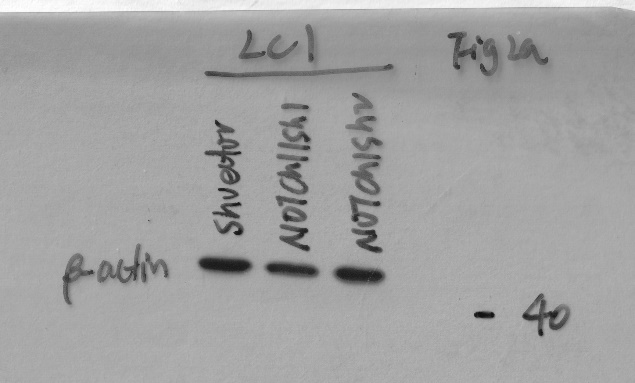 LC1
Fig2a
shvector
NOTCh1sh1
NOTCh1sh2
β-actin
- 40